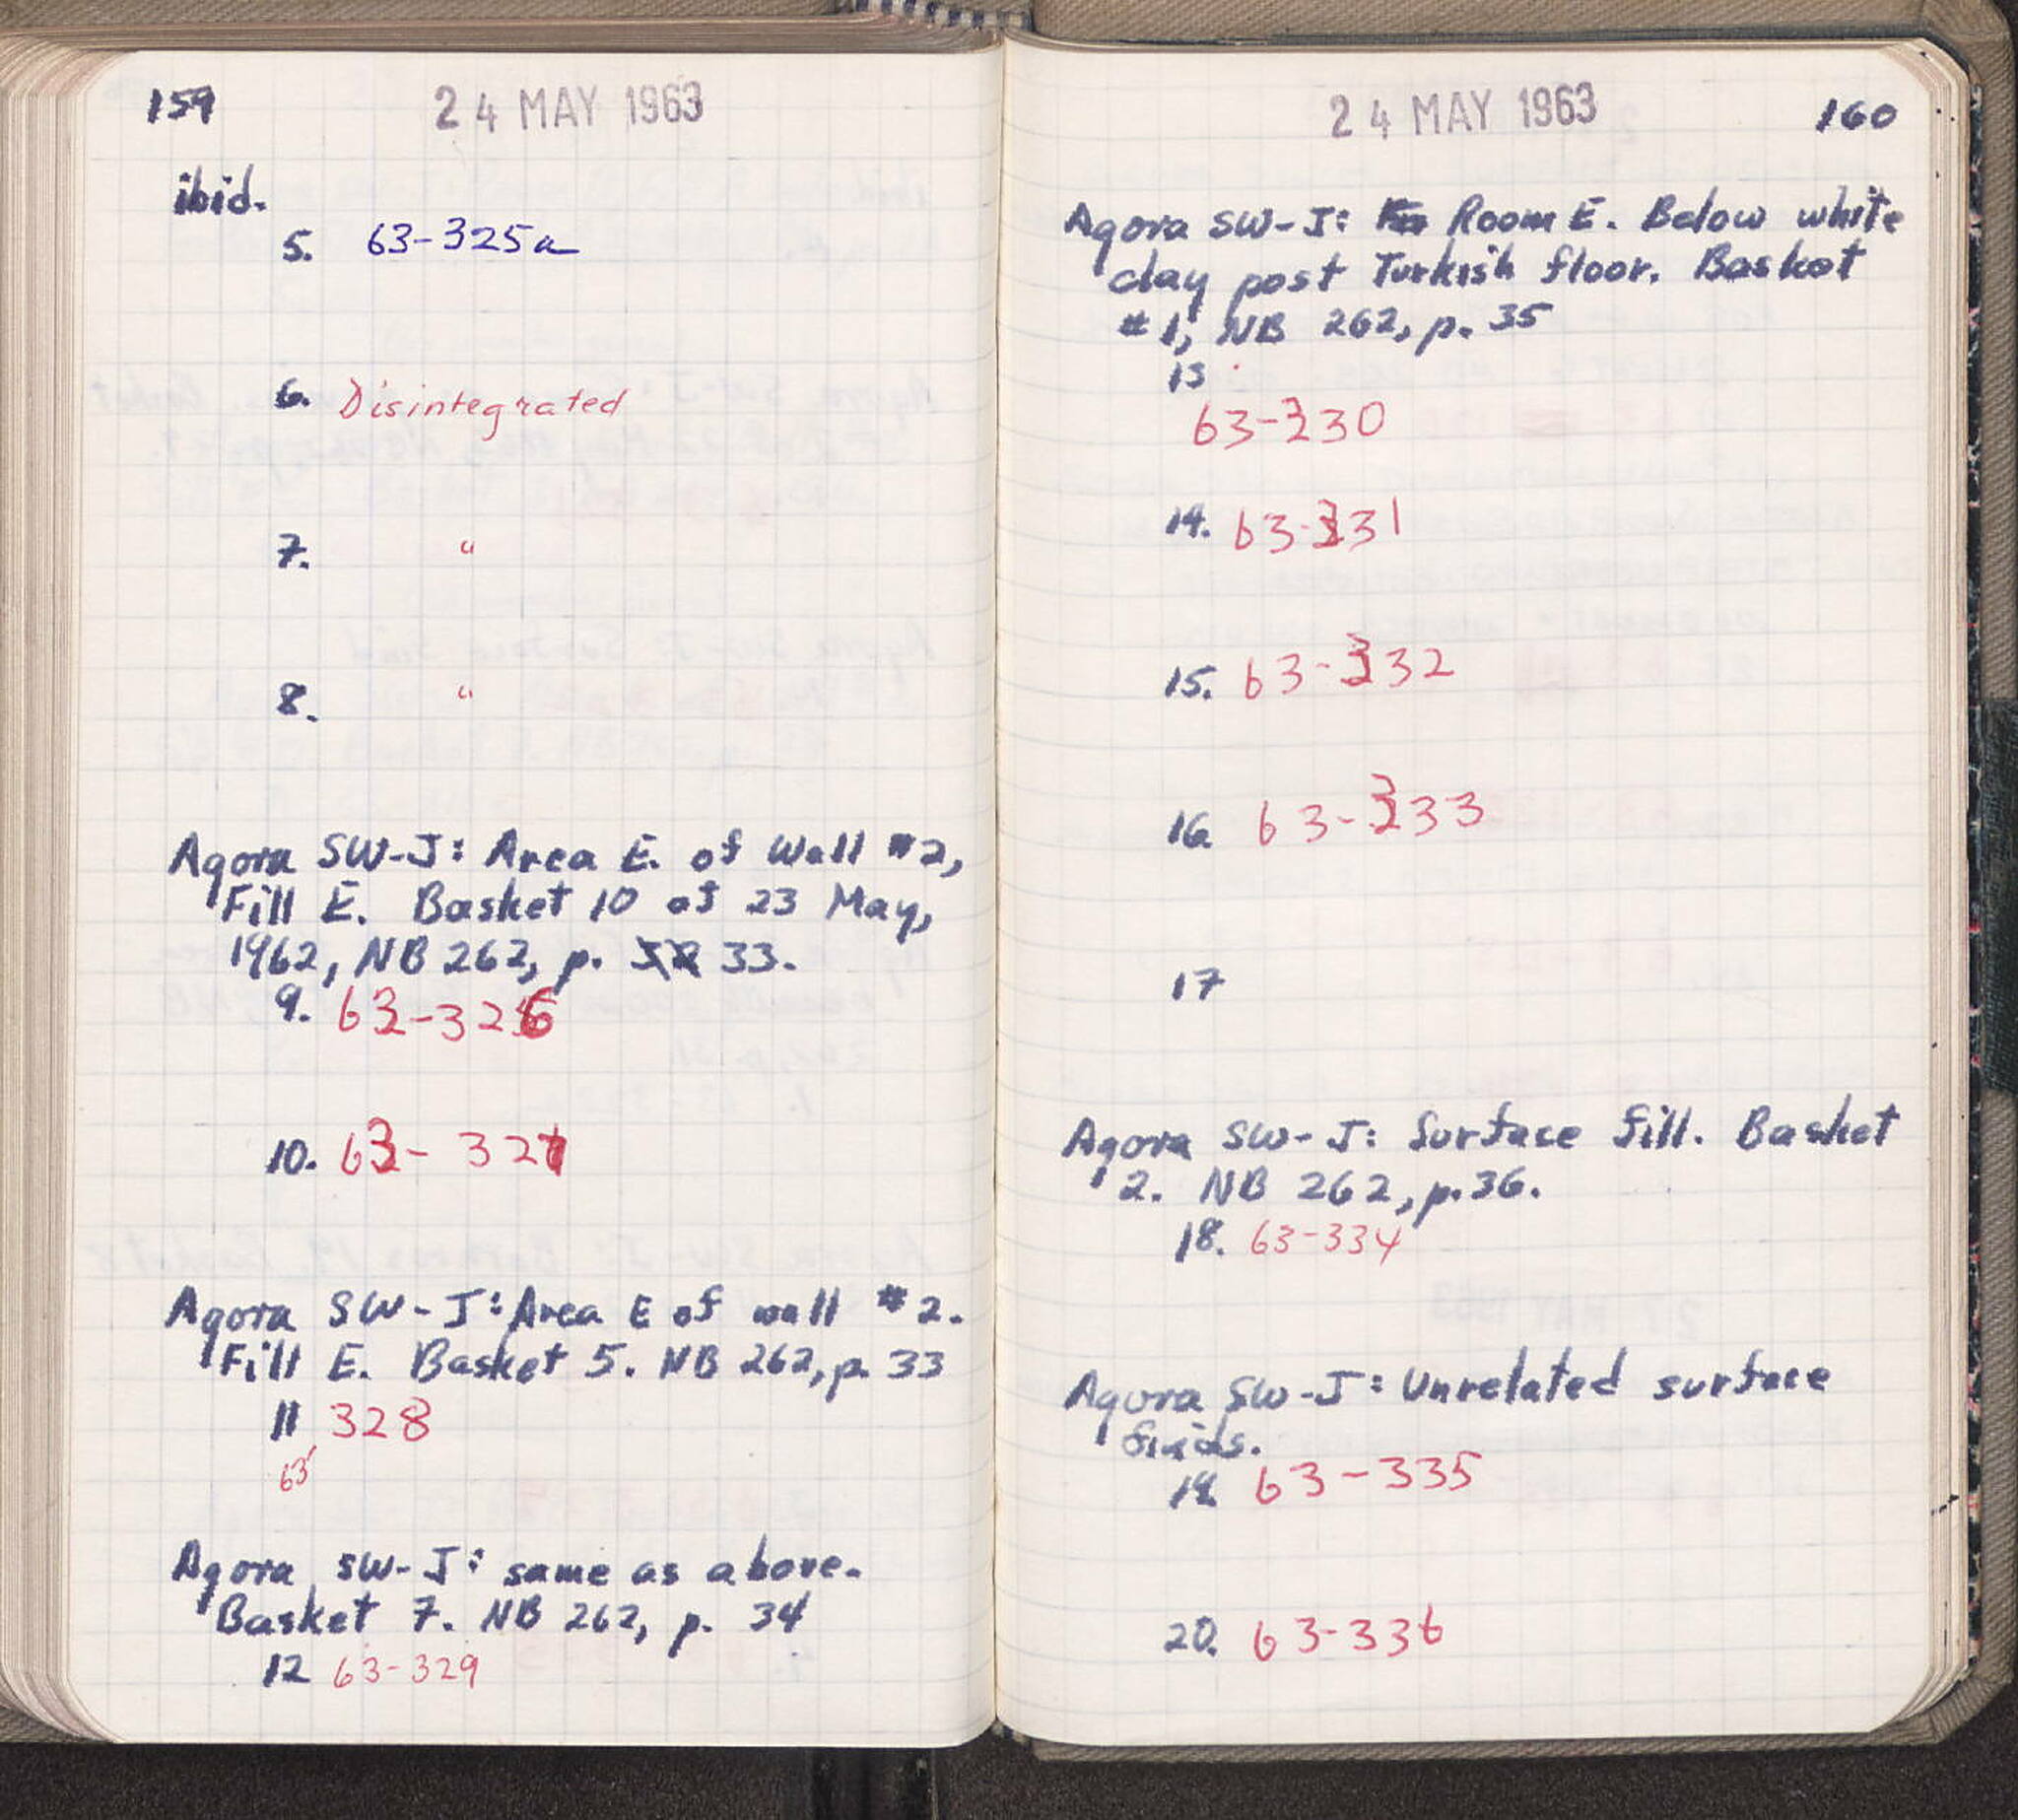 159
24 MAY 1963
ibid.
5. 63-325a
6. Disintegrated
7. "
8. "
Agora SW-J: Area E. of Wall #2,
Fill E. Basket 10 of 23 May,
1962, NB 262, p. 32 33.
9. 63-326
10. 63-327
Agora SW-J: Area E of wall #2.
Fill E. Basket 5. NB 262, p. 33
11 328
63
Agora SW-J: same as above.
Basket 7. NB 262, p. 34
12 63-329
24 MAY 1963
160
Agora SW-J: Room E. Below white
clay post Turkish floor. Basket
#1, NB 262, p. 35
13
63-330
14. 63-331
15. 63-332
16 63-333
17
Agora SW-J: Surface fill. Basket
2. NB 262, p. 36.
18. 63-334
Agora SW-J: Unrelated surface
finds.
19. 63-335
20. 63-336